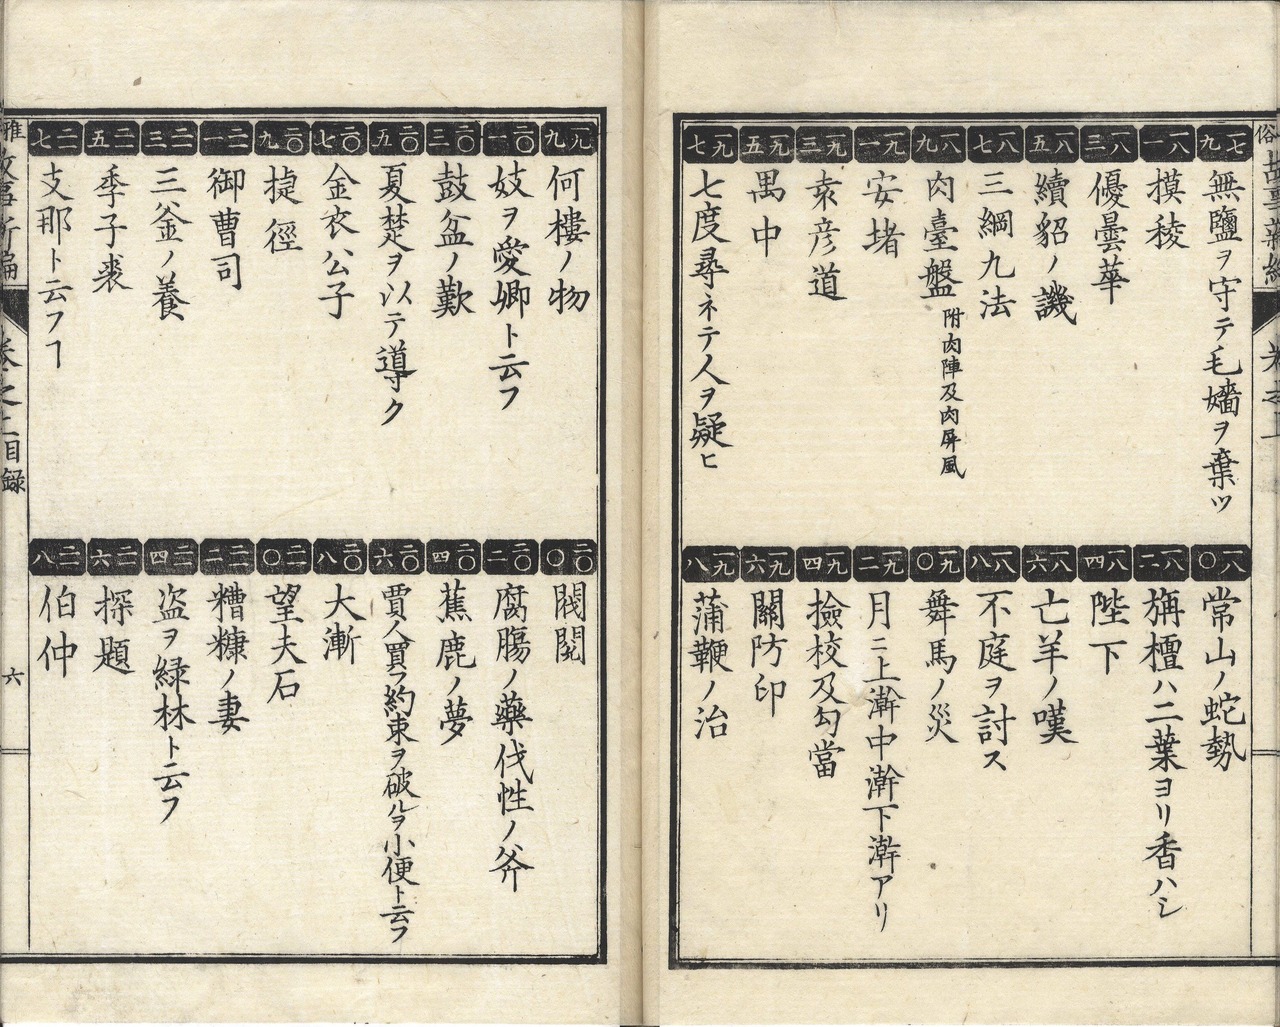 一七九
無鹽ヲ守テ毛嬙ヲ棄ツ
一八〇
常山ノ蛇勢
一八一
摸稜
一八二
栴檀ハ二葉ヨリ香ハシ
一八三
優曇華
一八四
陛下
一八五
續貂ノ譏
一八六
亡羊ノ嘆
一八七
三綱九法
一八八
不庭ヲ討ス
一八九
肉臺盤 附肉陣及肉屏風
一九〇
舞馬ノ災
一九一
安堵
一九二
月ニ上澣中澣下澣アリ
一九三
袁彦道
一九四
撿校及勾當
一九五
禺中
一九六
關防印
一九七
七度尋ネテ人ヲ疑ヒ
一九八
蒲鞭ノ治
一九九
何樓ノ物
二〇〇
閥閲
二〇一
妓ヲ愛卿ト云フ
二〇二
腐膓ノ藥伐性ノ斧
二〇三
鼓盆ノ歎
二〇四
蕉鹿ノ夢
二〇五
夏楚ヲ以テ導ク
二〇六
賈人買フ約束ヲ破ルヲ小便ト云フ
二〇七
金衣公子
二〇八
大漸
二〇九
捷徑
二一〇
望夫石
二一一
御曹司
二一二
糟糠ノ妻
二一三
三釜ノ養
二一四
盗ヲ緑林ト云フ
二一五
季子裘
二一六
探題
二一七
支那ト云フヿ
二一八
伯仲
目録
六